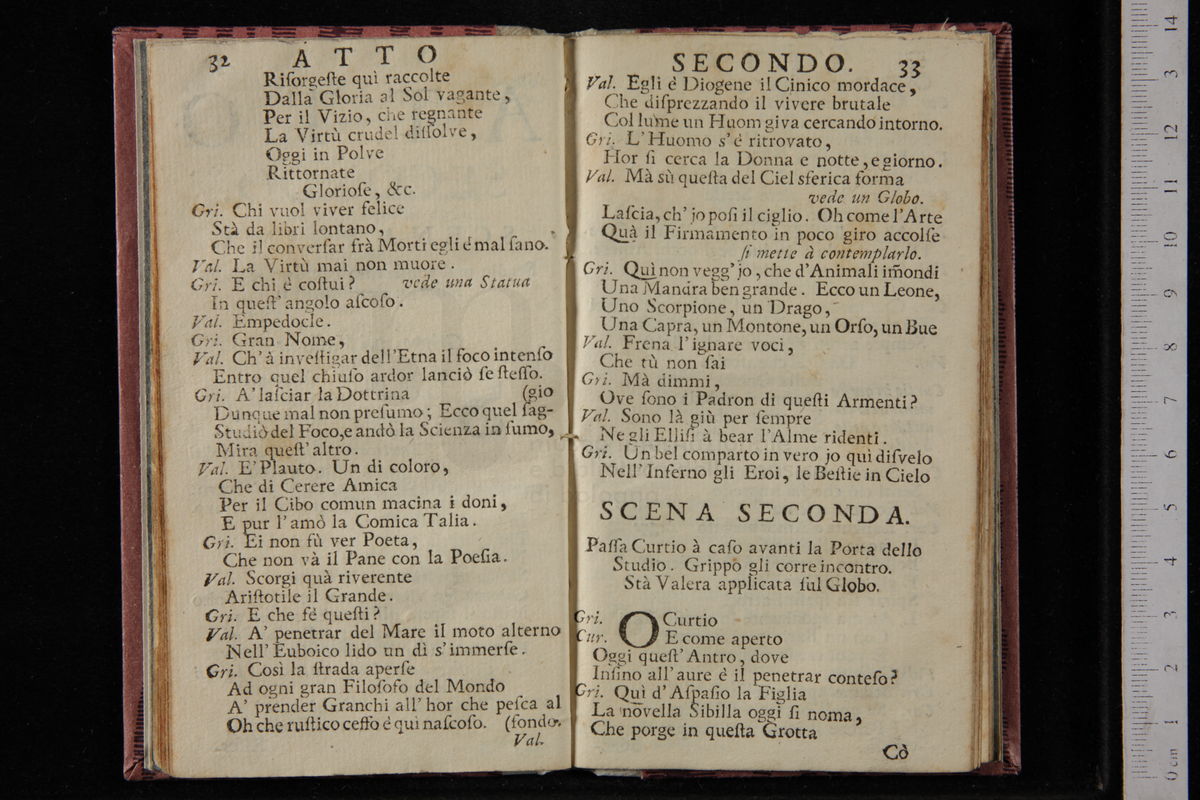 32 ATTO
Riſorgeſte quì raccolte
Dalla Gloria al Sol vagante,
Per il Vizio, che regnante
La Virtù crudel diſſolve,
Oggi in Polve
Rittornate
Glorioſe, &c.
Gri. Chi vuol viver felice
Stà da libri lontano,
Che il converſar frà Morti egli é mal ſano.
Val. La Virtù mai non muore.
Gri. E chi é coſtui? vede una Statua
In queſt' angolo aſcoſo.
Val. Empedocle.
Gri. Gran Nome,
Val. Ch' à inveſtigar dell'Etna il foco intenſo
Entro quel chiuſo ardor lanciò ſe ſteſſo.
Gri. A' laſciar la Dottrina (gio
Dunque mal non preſumo; Ecco quel ſag-
Studiò del Foco, e andò la Scienza in fumo,
Mira queſt' altro.
Val. E' Plauto. Un di coloro,
Che di Cerere Amica
Per il Cibo comun macina i doni,
E pur l'amò la Comica Talia.
Gri. Ei non fù ver Poeta,
Che non và il Pane con la Poeſia.
Val. Scorgi quà riverente
Ariſtotile il Grande.
Gri. E che fé queſti?
Val. A' penetrar del Mare il moto alterno
Nell' Euboico lido un dì s'immerſe.
Gri. Così la ſtrada aperſe
Ad ogni gran Filoſofo del Mondo
A' prender Granchi all' hor che peſca al
Oh che ruſtico ceffo é quì naſcoſo. (fondo.
Val.
SECONDO. 33
Val. Egli é Diogene il Cinico mordace,
Che diſprezzando il vivere brutale
Col lume un Huom giva cercando intorno.
Gri. L' Huomo s'é ritrovato,
Hor ſi cerca la Donna e notte, e giorno.
Val. Mà sù queſta del Ciel sferica forma
vede un Globo.
Laſcia, ch' jo poſi il ciglio. Oh come l'Arte
Quà il Firmamento in poco giro accolſe
ſi mette à contemplarlo.
Gri. Quì non vegg' jo, che d'Animali im̃ondi
Una Mandra ben grande. Ecco un Leone,
Uno Scorpione, un Drago,
Una Capra, un Montone, un Orſo, un Bue
Val. Frena l'ignare voci,
Che tù non ſai
Gri. Mà dimmi,
Ove ſono i Padron di queſti Armenti?
Val. Sono là giù per ſempre
Ne gli Elliſi à bear l'Alme ridenti.
Gri. Un bel comparto in vero jo quì diſvelo
Nell' Inferno gli Eroi, le Beſtie in Cielo
SCENA SECONDA.
Paſſa Curtio à caſo avanti la Porta dello
Studio. Grippo gli corre incontro.
Stà Valera applicata ſul Globo.
Gri. O Curtio
Cur. E come aperto
Oggi queſt' Antro, dove
Inſino all' aure é il penetrar conteſo?
Gri. Quì d' Aſpaſio la Figlia
La novella Sibilla oggi ſi noma,
Che porge in queſta Grotta
Cò
14
3
12
11
10
9
8
7
6
5
4
3
2
1
0 cm